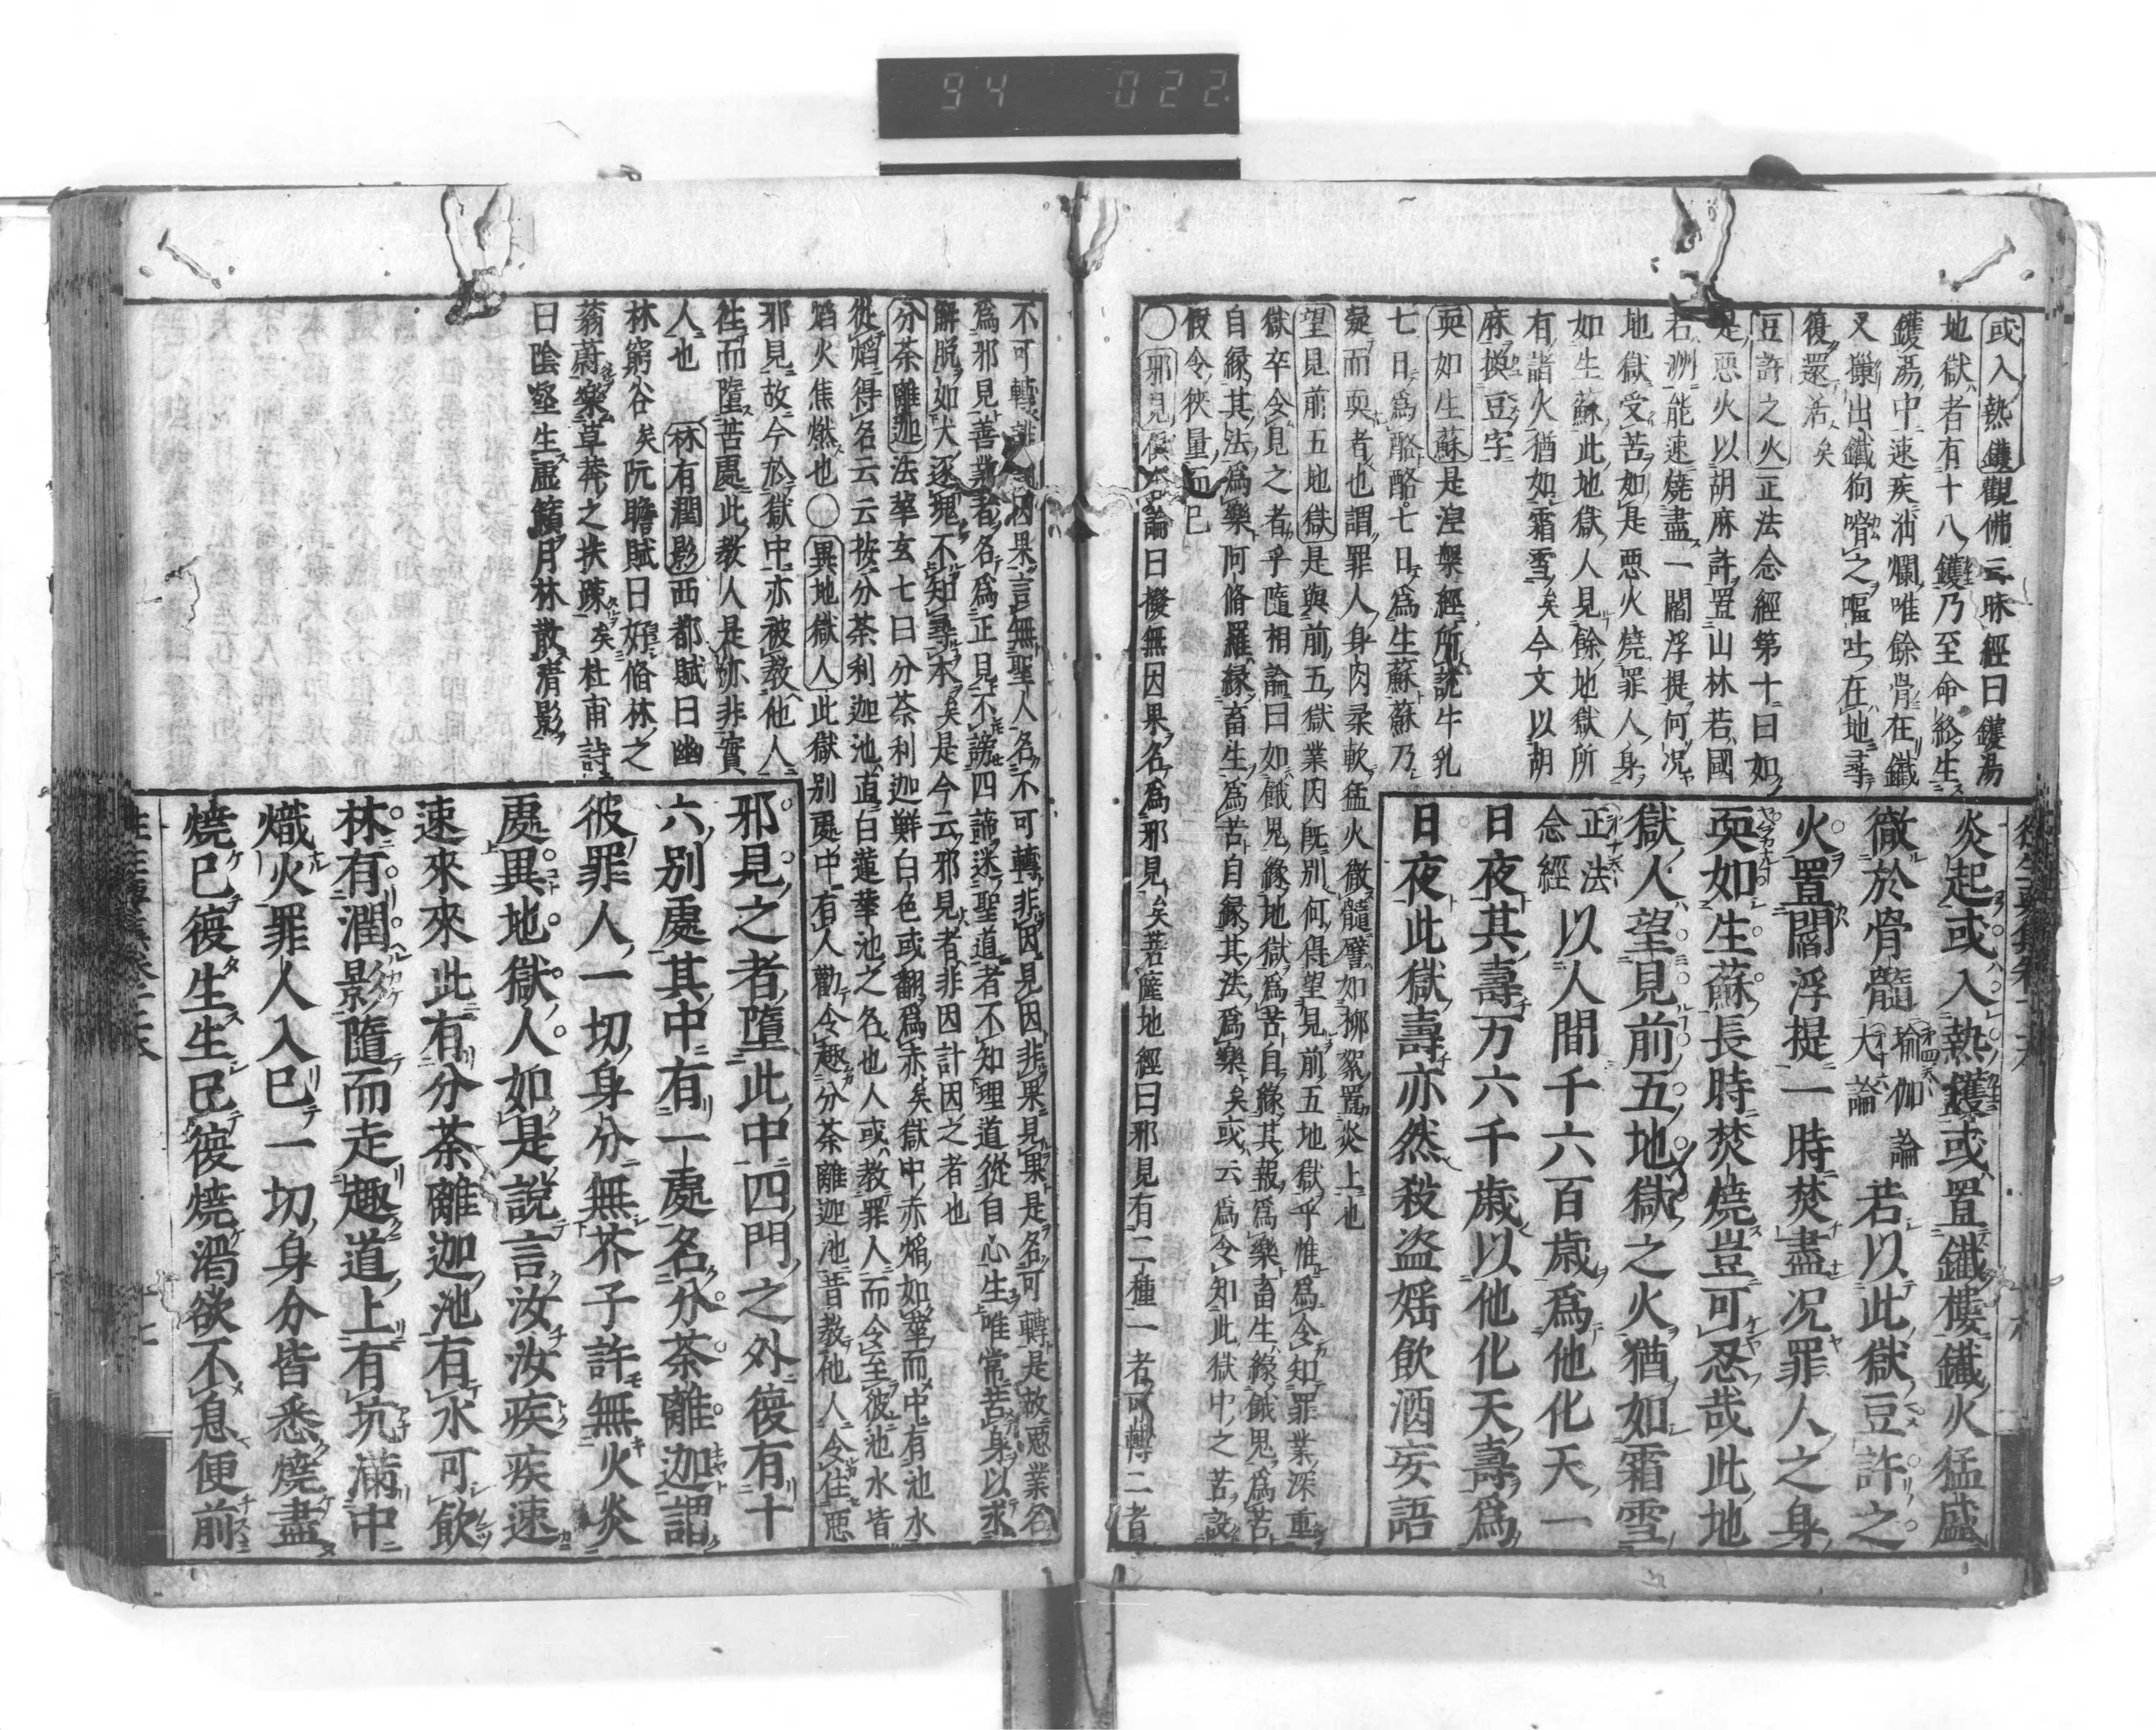 94 022
或入熱鑊觀佛三昧經曰鑊湯
地獄者有十八鑊乃至命終生
鑊湯中速疾消爛唯餘骨在鐵
叉𢷤出鐵狗噉之嘔吐在地尋
復還活矣
豆許之火正法念經第十曰如
是惡火以胡麻許置山林若國
若洲能速燒盡一閻浮提何況
地獄受苦如是惡火燒罪人身
如生蘇此地獄人見餘地獄所
有諸火猶如霜雪矣今文以胡
麻換豆字
耎如生蘇是涅槃經所説牛乳
七日爲酪酪七日爲生蘇蘇乃
凝而耎者也謂罪人身肉柔軟猛火徹髓譬如柳絮置炎上也
望見前五地獄是與前五獄業因既別何得望見前五地獄乎惟爲令知罪業深重
獄卒令見之者乎隨相論曰如餓鬼緣地獄爲苦自緣其報爲樂畜生緣餓鬼爲苦
自緣其法爲樂阿脩羅緣畜生爲苦自緣其法爲樂矣或云爲令知此獄中之苦設
假令狹量而已
〇邪見俱舍論曰撥無因果名爲邪見矣菩薩地經曰邪見有二種一者可轉二者
炎起或入熱鑊或置鐵樓鐵火猛盛
徹於骨髓瑜伽論第四大論第十六若以此獄豆許之
火置閻浮提一時焚盡況罪人之身
耎如生蘇長時焚燒豈可忍哉此地
獄人望見前五地獄之火猶如霜雪
正法念經以人間千六百歲爲他化天一
日夜其壽万六千歲以他化天壽爲
日夜此獄壽亦然殺盜婬飲酒妄語
不可轉誹因果言無聖人名不可轉非因見因非果見果是名可轉是故惡業名
爲邪見善業者名爲正見不謗四諦迷聖道者不知理道從自心生唯常苦身以求
解脱如犬逐塊不知尋本矣是今云邪見者非因計因之者也
分荼離迦法華玄七曰分荼利迦鮮白色或翻爲赤矣獄中赤焰如華而中有池水
從焰得名云云按分荼利迦池直白蓮華池之名也人或教罪人而令至彼池水皆
焰火焦燃也〇異地獄人此獄別處中有人勸令趣分荼離迦池昔教他人令住惡
邪見故今於獄中亦被教他人
往而墮苦處此教人是亦非實
人也 林有潤影西都賦曰幽
林窮谷矣阮瞻賦曰好脩林之
蓊蔚樂草莽之扶疎矣杜甫詩
曰陰壑生虛籟月林散清影
邪見之者墮此中四門之外復有十
六別處其中有一處名分荼離迦謂
彼罪人一切身分無芥子許無火炎
處異地獄人如是説言汝汝疾疾速
速來來此有分荼離迦池有水可飲
林有潤影隨而走趣道上有坑滿中
熾火罪人入已一切身分皆悉燒盡
燒已復生生已復燒渴欲不息便前